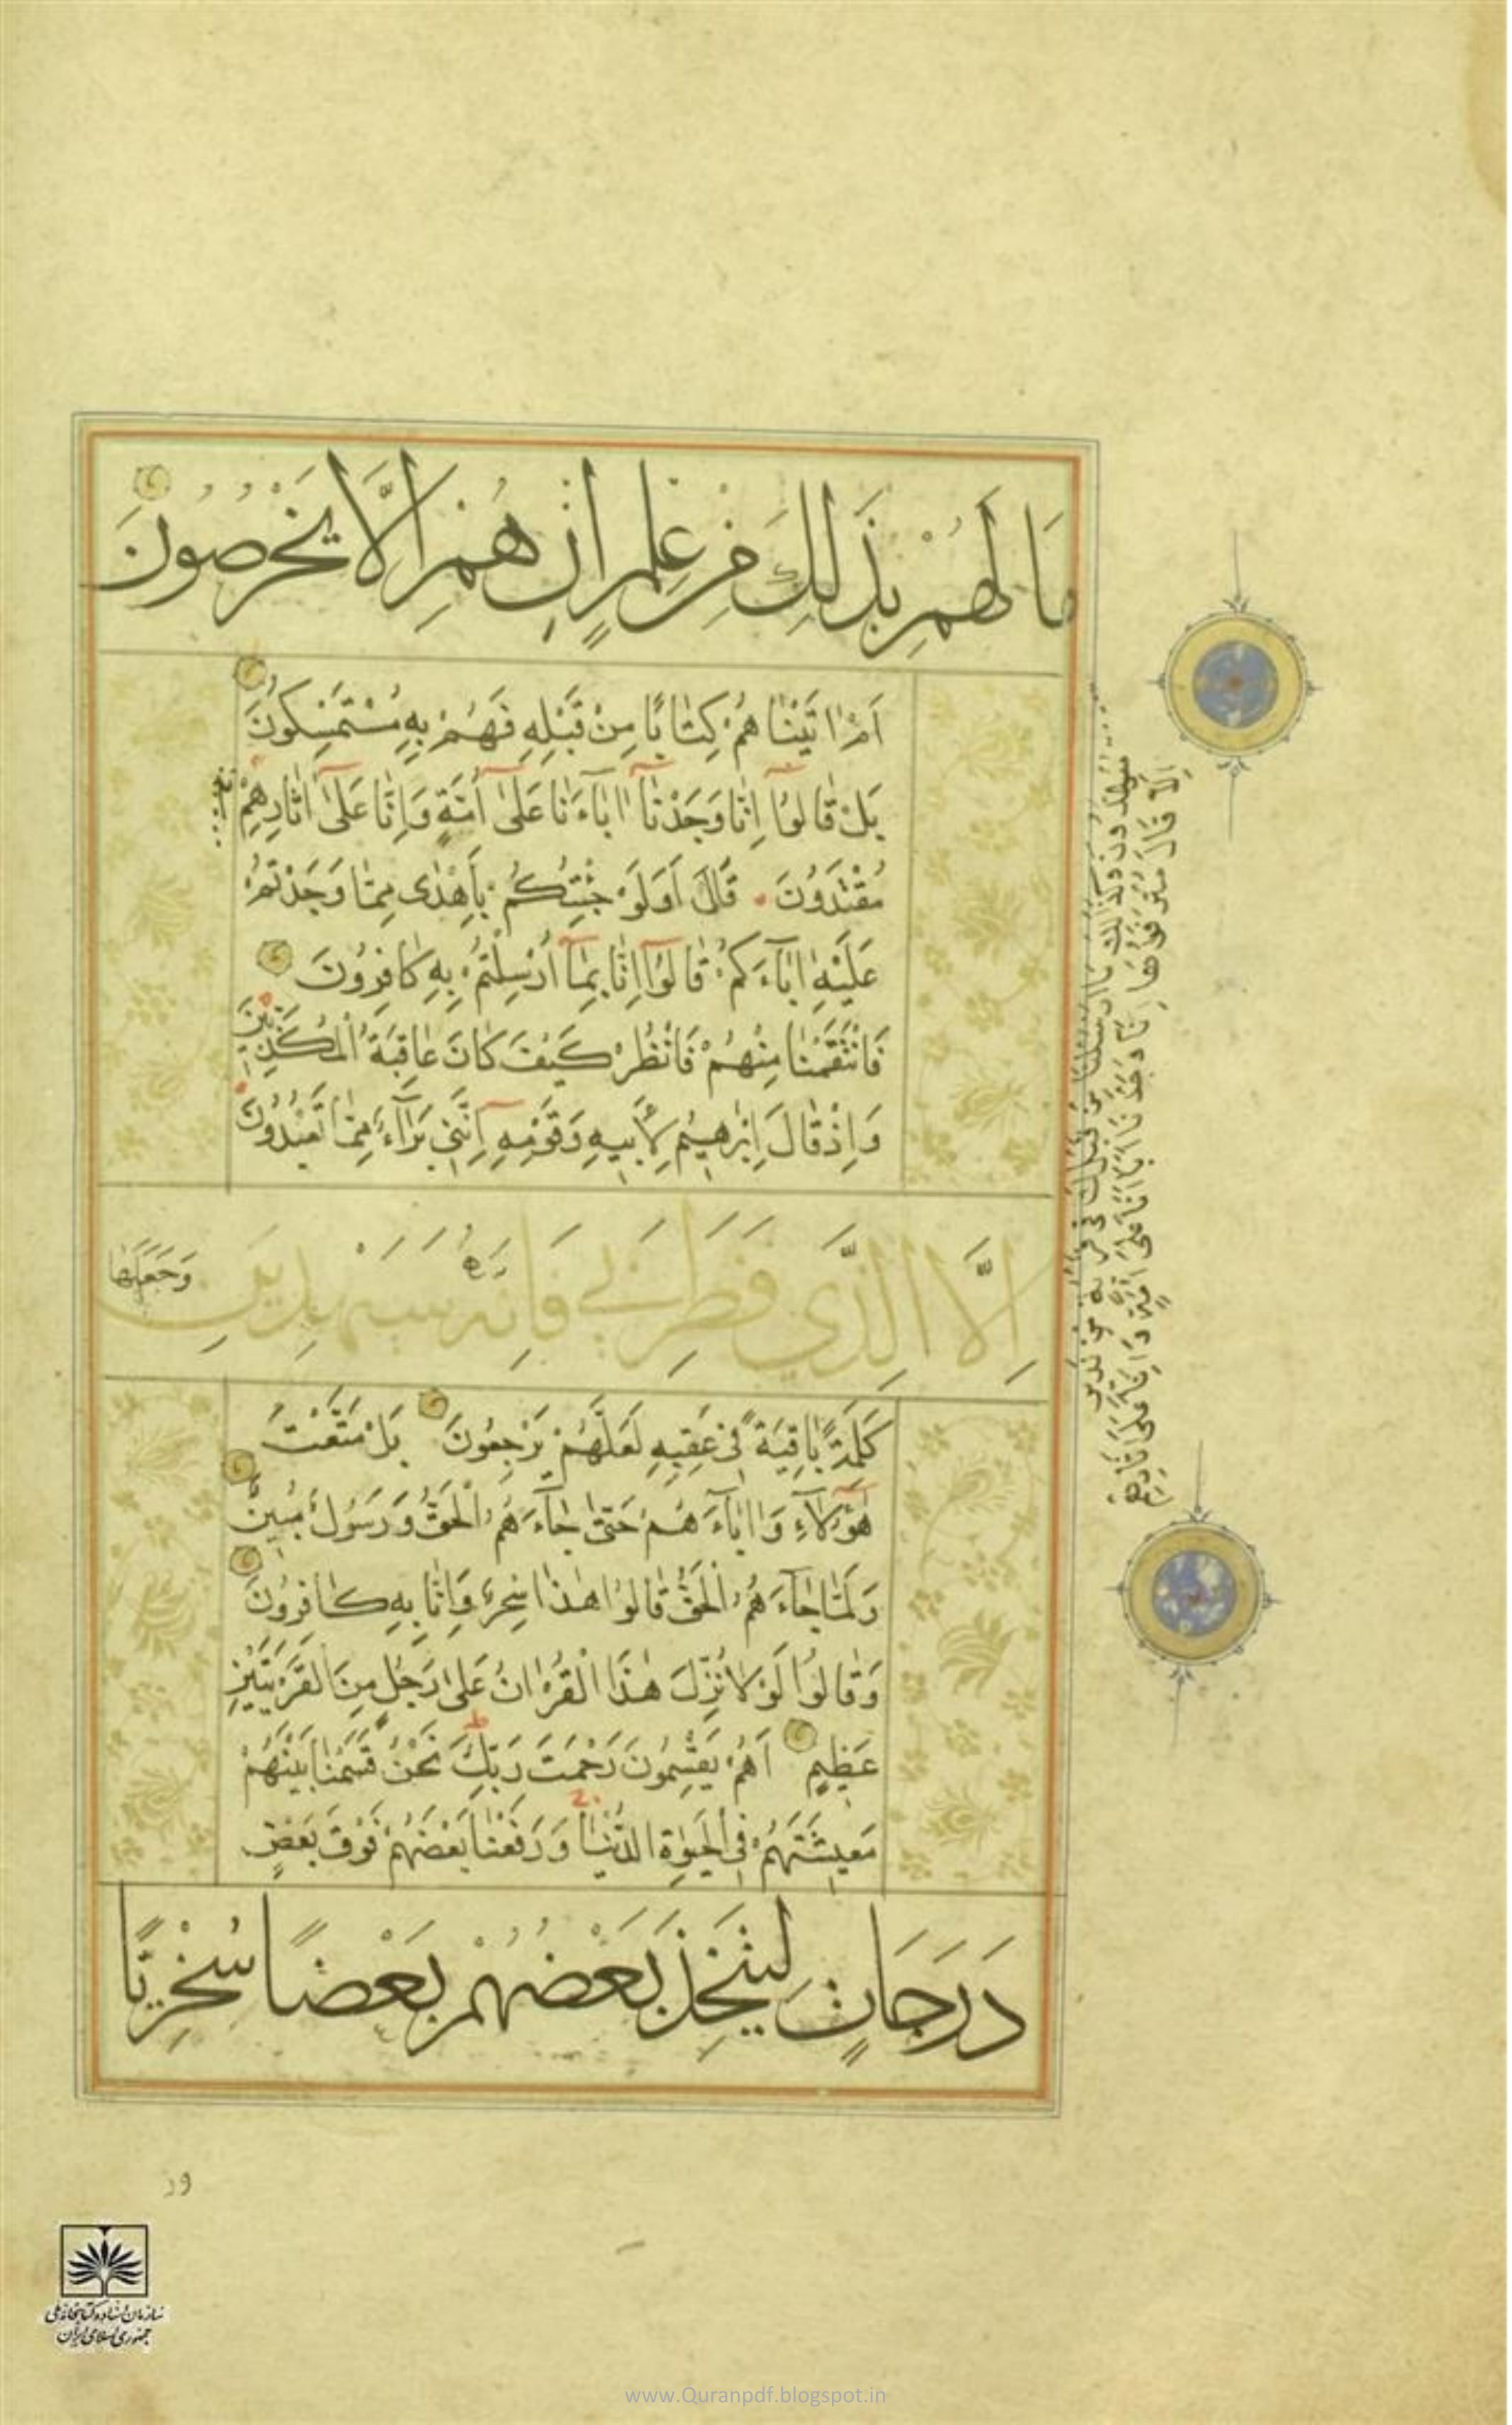 مَا لَهُمْ بِذَلِكَ مِنْ عِلْمٍ اِنْ هُمْ اِلَّا يَخْرُصُونَ
اَمْ اٰتَيْنٰاهُمْ كِتٰابًا مِنْ قَبْلِهِ فَهُمْ بِهِ مُسْتَمْسِكُونَ
بَلْ قٰالُوٓا اِنّٰا وَجَدْنٰٓا اٰبٰٓاءَنٰا عَلٰٓى اُمَّةٍ وَاِنّٰا عَلٰٓى اٰثٰارِهِمْ
مُقْتَدُونَ قٰالَ اَوَلَوْ جِئْتُكُمْ بِاَهْدٰى مِمّٰا وَجَدْتُمْ
عَلَيْهِ اٰبٰٓاءَكُمْ قٰالُوٓا اِنّٰا بِمٰٓا اُرْسِلْتُمْ بِهِ كٰافِرُونَ
فَانْتَقَمْنٰا مِنْهُمْ فَانْظُرْ كَيْفَ كٰانَ عٰاقِبَةُ الْمُكَذِّبِينَ
وَاِذْ قٰالَ اِبْرٰهِيمُ لِاَبِيهِ وَقَوْمِهِ اِنَّنِي بَرٰٓاءٌ مِمّٰا تَعْبُدُونَ
اِلَّا الَّذِي فَطَرَنِي فَاِنَّهُ سَيَهْدِينِ وَجَعَلَهٰا
كَلِمَةً بٰاقِيَةً فِي عَقِبِهِ لَعَلَّهُمْ يَرْجِعُونَ بَلْ مَتَّعْتُ
هٰٓؤُلٰٓاءِ وَاٰبٰٓاءَهُمْ حَتّٰى جٰٓاءَهُمُ الْحَقُّ وَرَسُولٌ مُبِينٌ
وَلَمّٰا جٰٓاءَهُمُ الْحَقُّ قٰالُوا هٰذٰا سِحْرٌ وَاِنّٰا بِهِ كٰافِرُونَ
وَقٰالُوا لَوْلٰا نُزِّلَ هٰذَا الْقُرْاٰنُ عَلٰى رَجُلٍ مِنَ الْقَرْيَتَيْنِ
عَظِيمٍ اَهُمْ يَقْسِمُونَ رَحْمَتَ رَبِّكَ نَحْنُ قَسَمْنٰا بَيْنَهُمْ
مَعِيشَتَهُمْ فِي الْحَيٰوةِ الدُّنْيٰا وَرَفَعْنٰا بَعْضَهُمْ فَوْقَ بَعْضٍ
دَرَجَاتٍ لِيَتَّخِذَ بَعْضُهُمْ بَعْضًا سُخْرِيًّا
مهتدون وكذلك ما ارسلنا من قبلك في قرية من نذير
اِلَّا قَالَ مُتْرَفُوهَا اِنَّا وَجَدْنَا اٰبَاءَنَا عَلٰى اُمَّةٍ وَاِنَّا عَلٰى اٰثَارِهِمْ
ور
سازمان اسناد و کتابخانه ملی
جمهوری اسلامی ایران
www.Quranpdf.blogspot.in